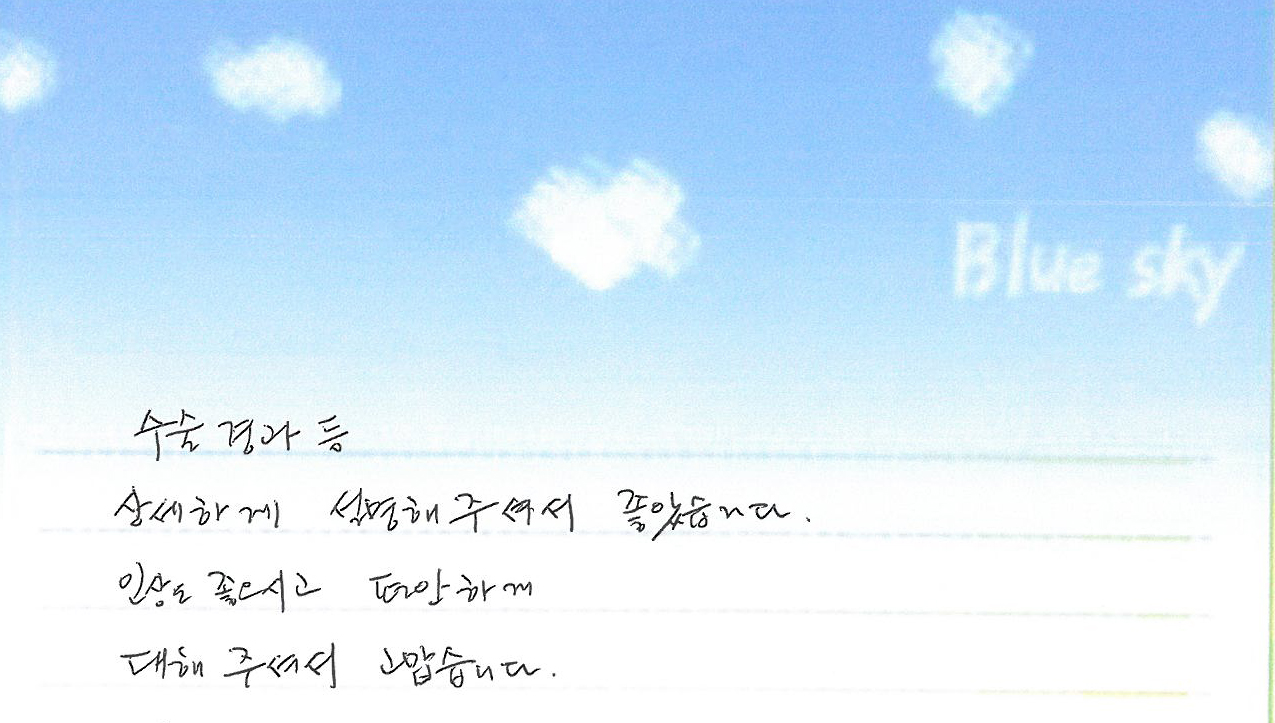 Blue sky
수술 경과 등
상세하게 설명해 주셔서 좋았습니다.
인상도 좋으시고 편안하게
대해 주셔서 고맙습니다.